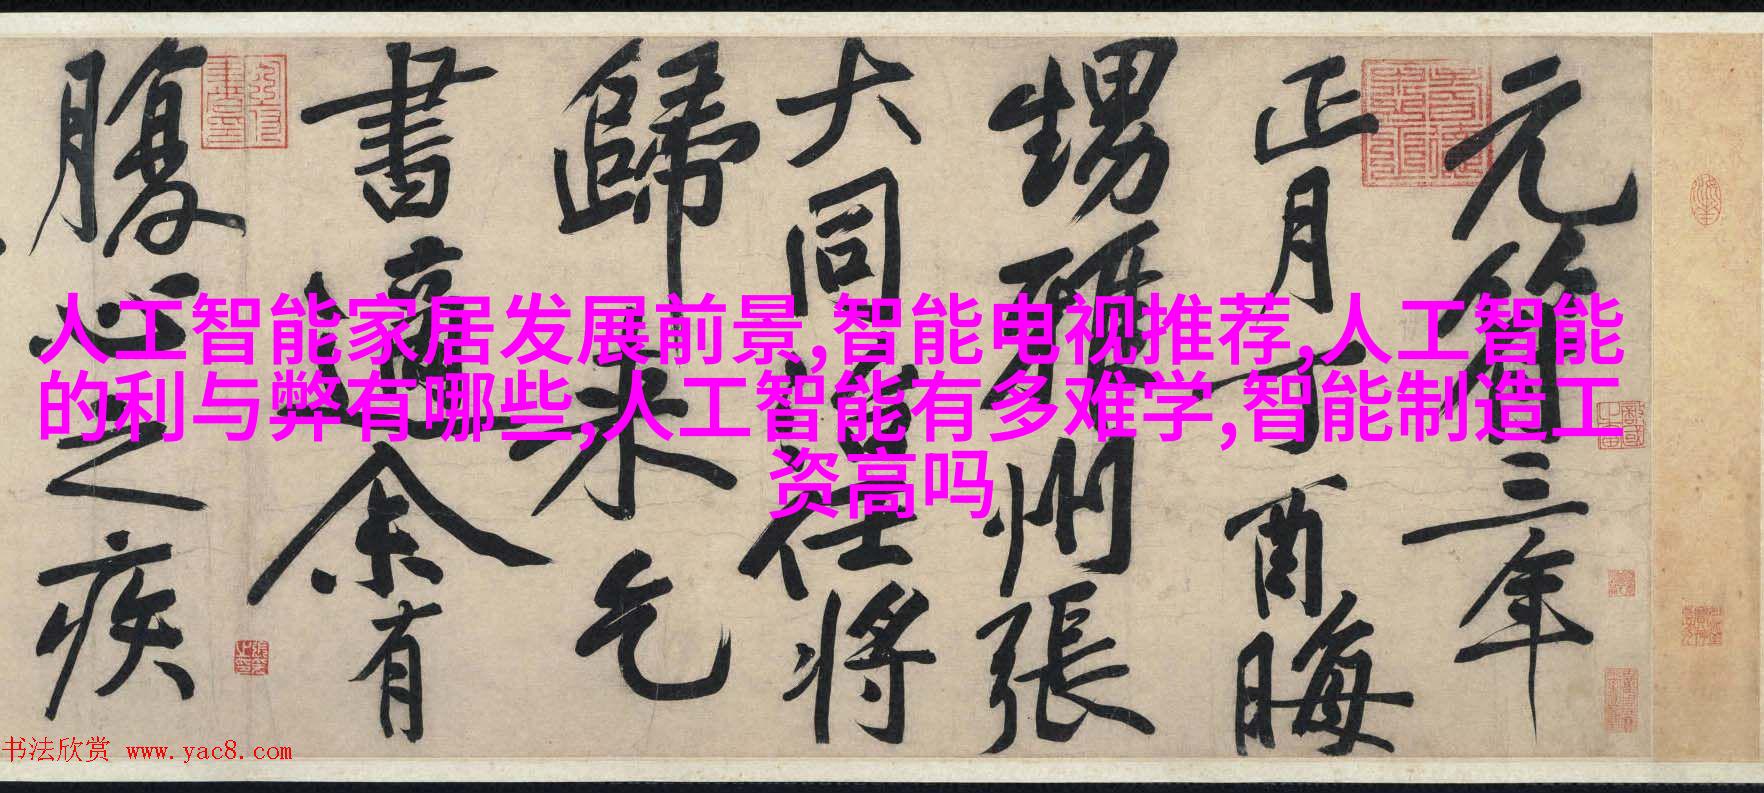 人工智能家居发展前景,智能电视推荐,人工智能
的利与弊有哪些,人工智能有多难学,智能制造工
资高吗
元符三年
正月丁酉晦
甥雅州張
大同治任將
歸來乞
書適余有
腹心之疾
书法欣赏 www.yac8.com